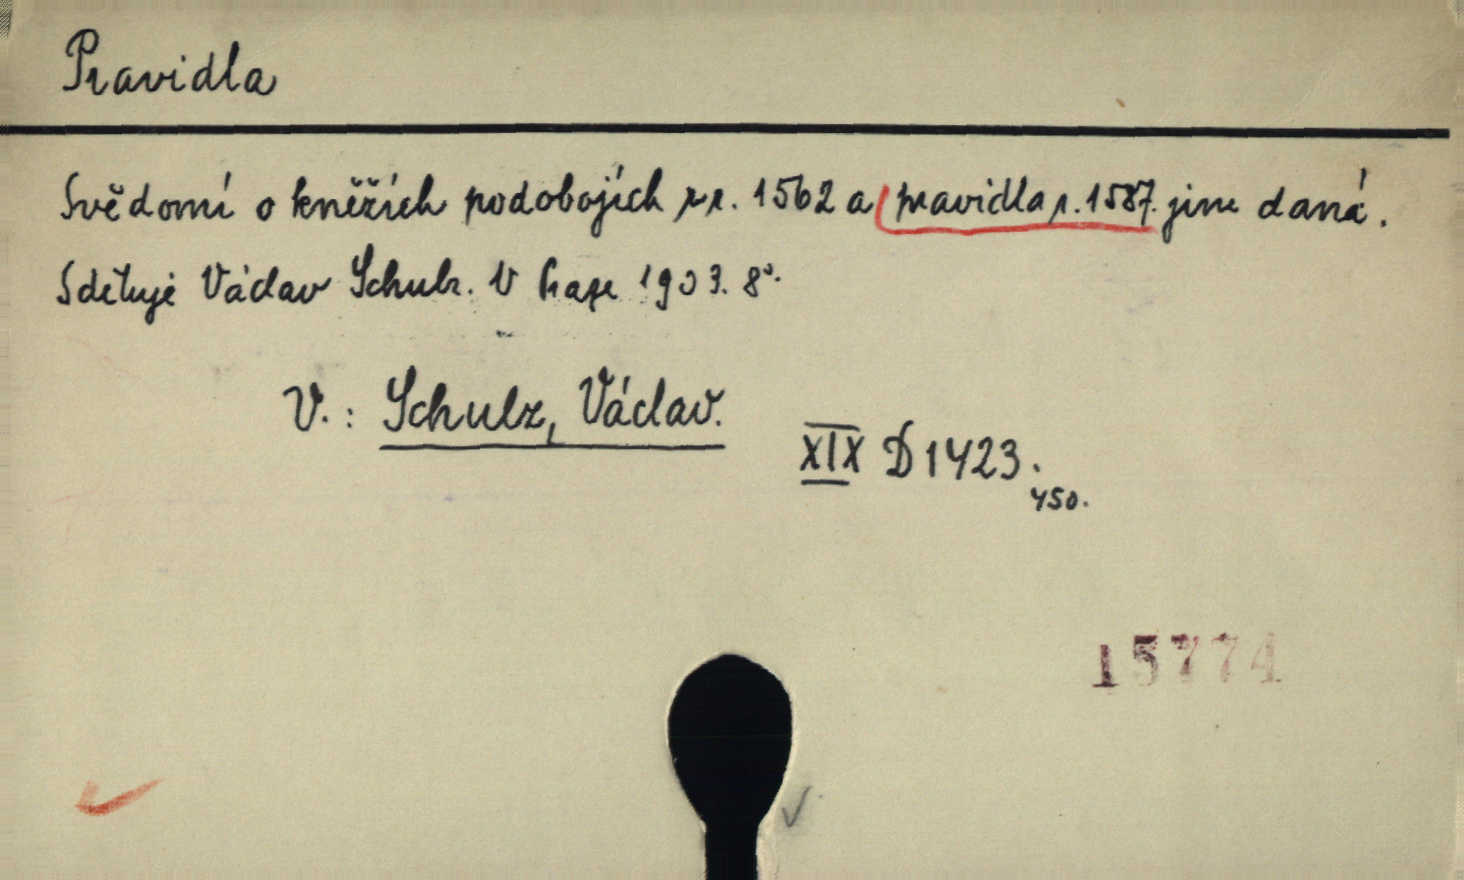 Pravidla
Svědomí o kněžích podobojích z r. 1562 a pravidla r. 1587. jim daná.
Sděluje Václav Schulz. V Praze 1903. 8°.
V.: Schulz, Václav.
XIX D 1423.
450.
15774